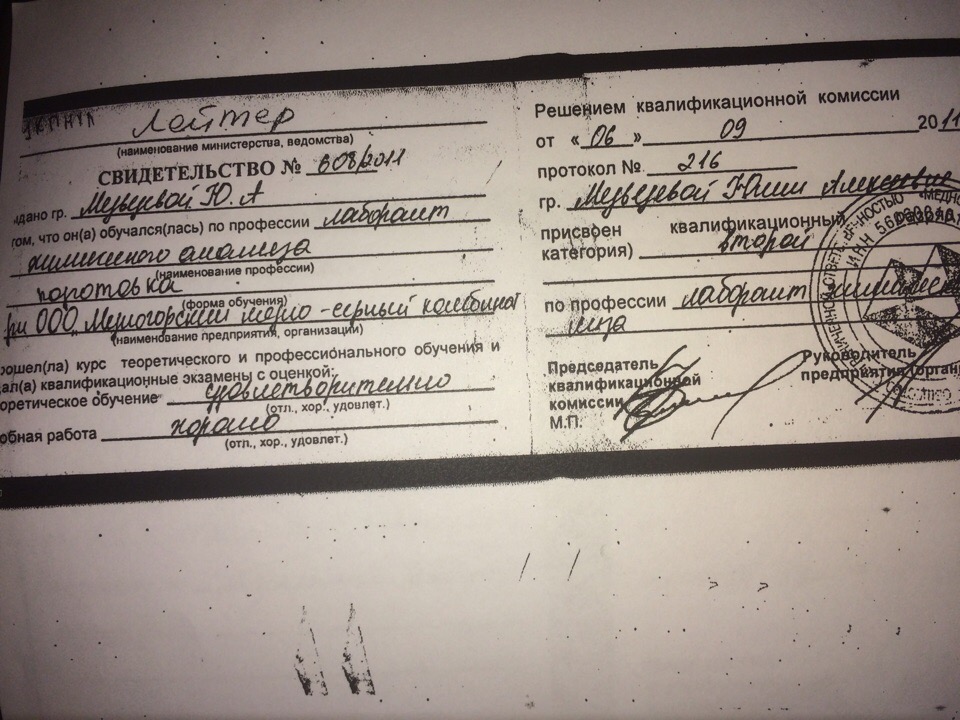 Лойтер
(наименование министерства, ведомства)
СВИДЕТЕЛЬСТВО № 608/2011
дано гр. Медведевой Ю. А
том, что он(а) обучался(лась) по профессии лаборант
химического анализа
(наименование профессии)
подготовка
(форма обучения)
при ООО, Медногорский медно-серный комбинат
(наименование предприятия, организации)
рошел(ла) курс теоретического и профессионального обучения и
дал(а) квалификационные экзамены с оценкой:
оретическое обучение удовлетворительно
(отл., хор., удовлет.)
обная работа хорошо
(отл., хор., удовлет.)
Решением квалификационной комиссии
от «06» 09 2011
протокол № 216
гр. Медведевой Юлии Алексеевне
присвоен квалификационный
категория) второй
по профессии лаборант химическ
лиза
Председатель
квалификационной
комиссии
М.П.
Руководитель
предприятия (орган